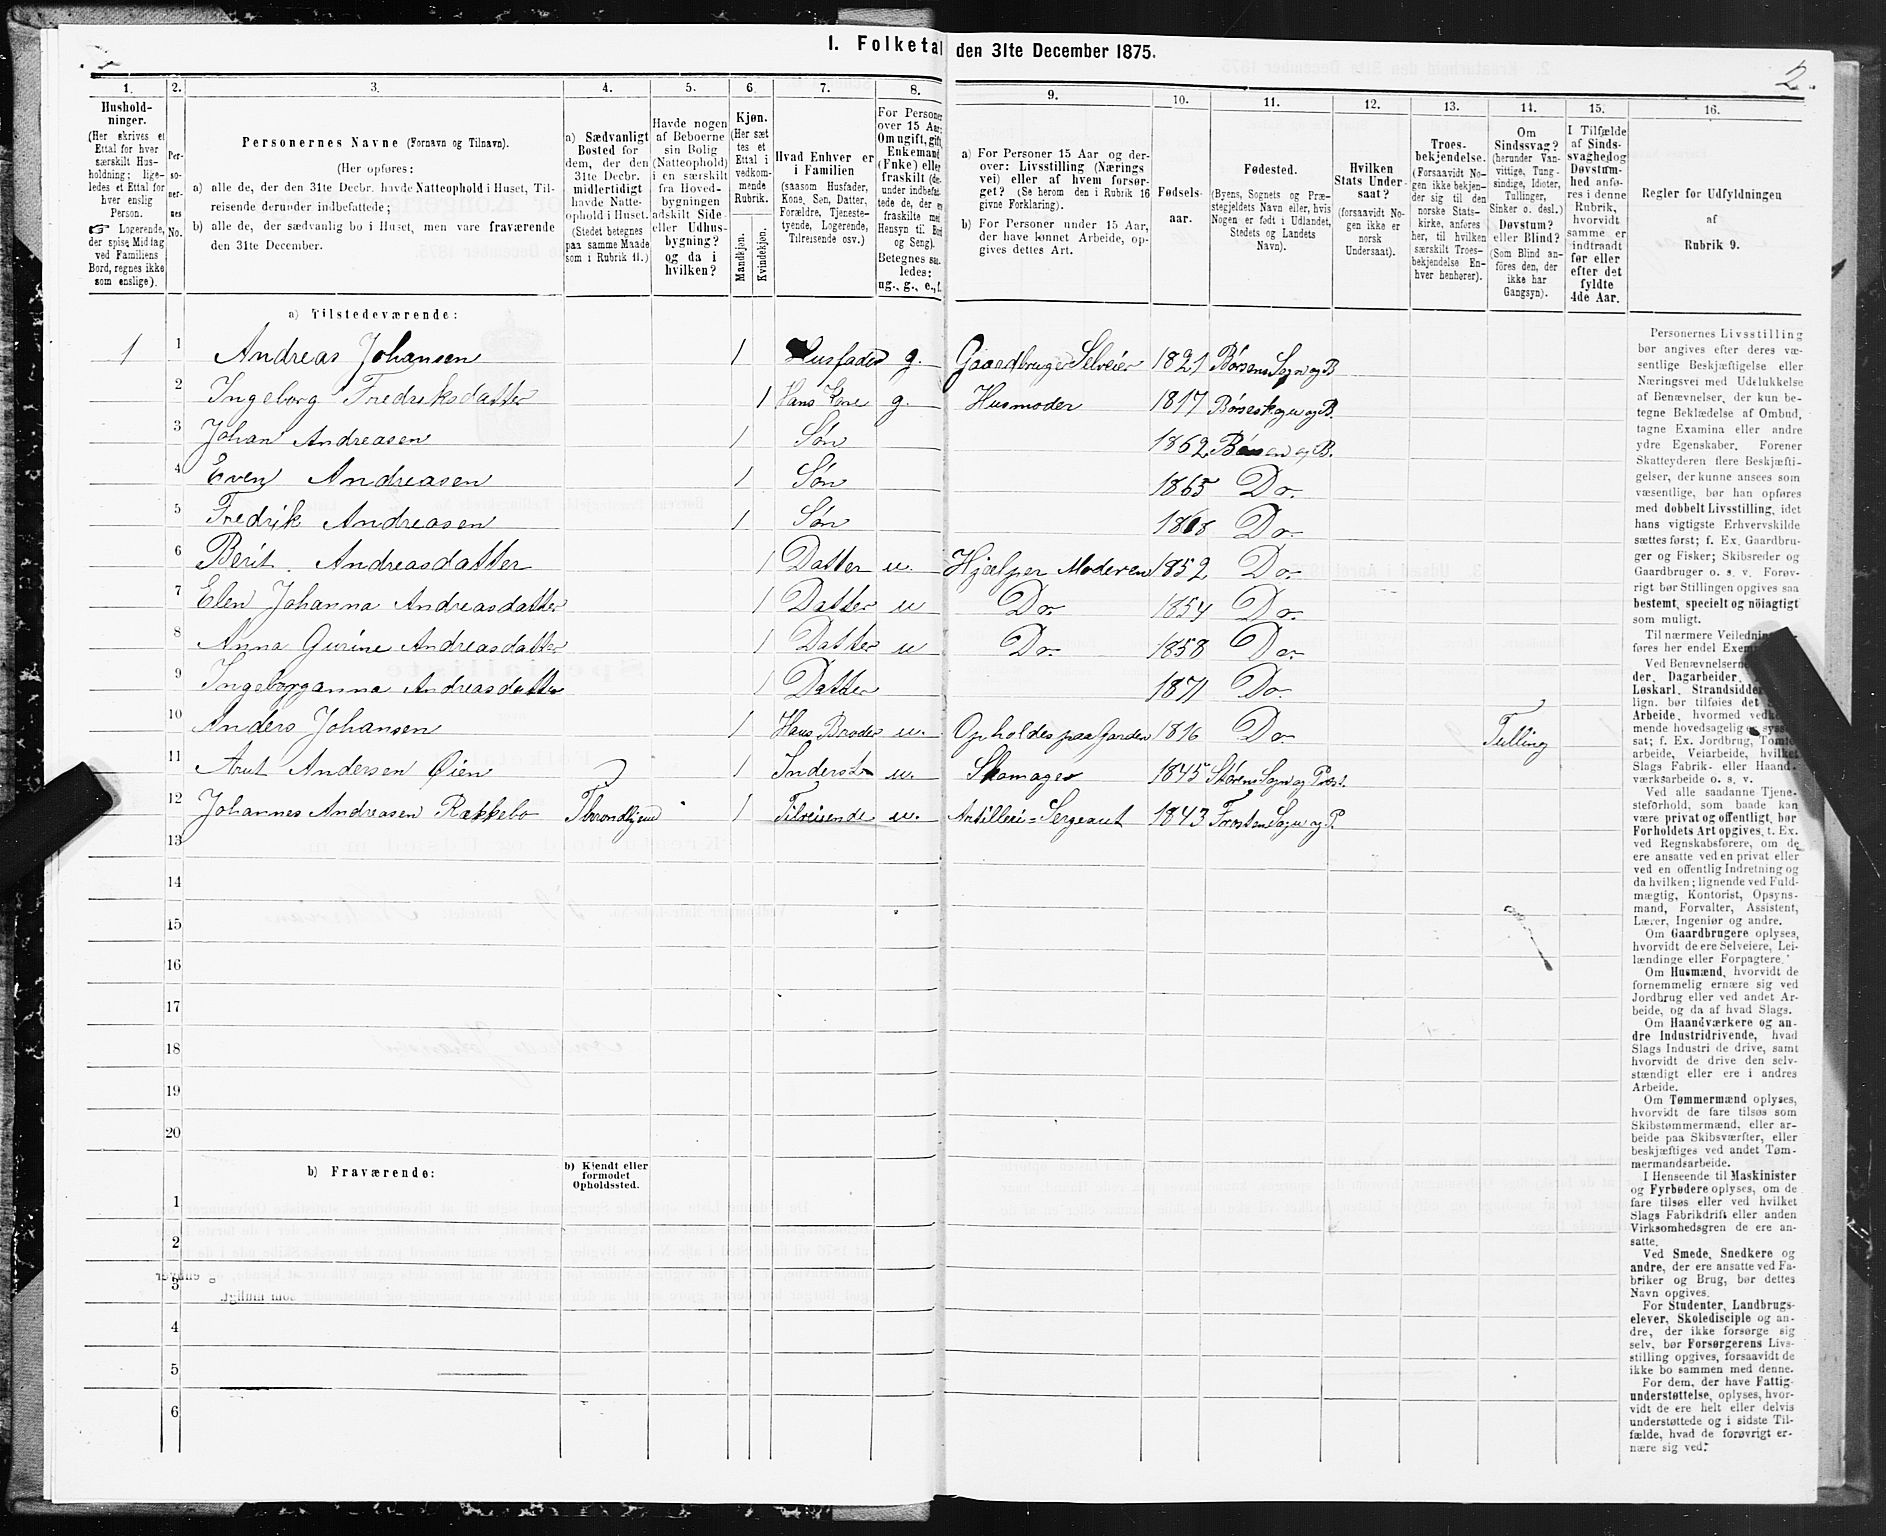 1. Folketal den 31te December 1875.
2.
1.
Hushold-
ninger.
(Her skrives et
Ettal for hver
særskilt Hus-
holdning; lige-
ledes et Ettal for
hver enslig
Person.
Logerende,
der spise Middag
ved Familiens
Bord, regnes ikke
som enslige).
2.
Per-
so-
ner-
nes
No.
3.
Personernes Navne (Fornavn og Tilnavn).
(Her opføres:
a) alle de, der den 31te Decbr. havde Natteophold i Huset, Til-
reisende derunder indbefattede;
b) alle de, der sædvanlig bo i Huset, men vare fraværende
den 31te December.
4.
a) Sædvanligt
Bosted for
dem, der den
31te Decbr.
midlertidigt
havde Natte-
ophold i Huset.
(Stedet betegnes
paa samme Maade
som i Rubrik 11.)
5.
Havde nogen
af Beboerne
sin Bolig
(Natteophold)
i en særskilt
fra Hoved-
bygningen
adskilt Side-
eller Udhus-
bygning?
og da i
hvilken?
6.
Kjøn.
(Her sæt-
tes et
Ettal i
vedkom-
mende
Rubrik.
Mandkjøn.
Kvindekjøn.
7.
Hvad Enhver er
i Familien
(saasom Husfader,
Kone, Søn, Datter,
Forældre, Tjeneste-
tyende, Logerende,
Tilreisende osv.)
8.
For Personer
over 15 Aar:
Om ugift, gift,
Enkemand
(Enke) eller
fraskilt
Betegnes saa-
ledes:
ug., g., e., f.
9.
a) For Personer 15 Aar og der-
over: Livsstilling (Nærings
vei) eller af hvem forsør-
get? (Se herom den i Rubrik 16
givne Forklaring).
b) For Personer under 15 Aar,
der have lønnet Arbeide, op-
gives dettes Art.
10.
Fødsels-
aar.
11.
Fødested.
(Byens, Sognets og Præ-
stegjeldets Navn eller, hvis
Nogen er født i Udlandet,
Stedets og Landets
Navn).
12.
Hvilken
Stats Under-
saat?
(forsaavidt No-
gen ikke er
norsk
Undersaat).
13.
Troes-
bekjendelse.
(Forsaavidt No-
gen ikke bekjen-
der sig til den
norske Stats-
kirke, anføres
her, til hvilken
særskilt Troes-
bekjendelse En-
hver henhører).
14.
Om
Sindssvag?
(herunder Van-
vittige, Tung-
sindige, Idioter,
Tullinger,
Sinker o. desl.)
Døvstum?
eller Blind?
(Som Blind an-
føres den, der
ikke har
Gangsyn).
15.
I Tilfælde
af Sinds-
svaghed og
Døvstum-
hed anfø-
res i denne
Rubrik,
hvorvidt
samme er
indtraadt
før eller
efter det
fyldte
4de Aar.
16.
Regler for Udfyldningen
af
Rubrik 9.
a) Tilstedeværende:
1 1 Andreas Johansen 1 Husfader g. Gaardbruger Selveier 1821 Børsens Sogn og P
2 Ingeborg Fredriksdatter 1 Hans Kone g. Husmoder 1817 Børseskogn og P.
3 Johan Andreasen 1 Søn 1862 Børsen og P.
4 Even Andreasen 1 Søn 1865 Do.
5 Fredrik Andreasen 1 Søn 1868 Do.
6 Berit Andreasdatter 1 Datter u. Hjælper Moderen 1852 Do.
7 Elen Johanna Andreasdatter 1 Datter u Do. 1854 Do.
8 Anna Gurine Andreasdatter 1 Datter u Do. 1858 Do.
9 Ingeborganna Andreasdatter 1 Datter 1871 Do.
10 Anders Johansen 1 Hans Broder u. Opholdes paa Garden 1816 Do. Tulling
11 Arnt Andersen Øien 1 Inderst u. Skomager 1845 Størens Sogn og Præst.
12 Johannes Andreasen Rækkebo Throndhjem 1 Tilreisende u. Artilleri=Sergeant 1843 Frosten Sogn og P.
13
14
15
16
17
18
19
20
b) Fraværende:
b) Kjendt eller
formodet
Opholdssted.
1
2
3
4
5
6
Personernes Livsstilling
bør angives efter deres væ-
sentlige Beskjæftigelse eller
Næringsvei med Udelukkelse
af Benævnelser, der kun be-
tegne Beklædelse af Ombud,
tagne Examina eller andre
ydre Egenskaber. Forener
Skatteyderen flere Beskjæfti-
gelser, der kunne ansees som
væsentlige, bør han opføres
med dobbelt Livsstilling, idet
hans vigtigste Erhvervskilde
sættes først; f. Ex. Gaardbru-
ger og Fisker; Skibsreder og
Gaardbruger o. s. v. Forøv-
rigt bør Stillingen opgives saa
bestemt, specielt og nöiagtigt
som muligt.
Til nærmere Veiledning
føres her endel
Ved Benævnelserne
der, Dagarbeider,
Løskarl, Strandsidder
lign. bør tilføies det
Arbeide, hvormed
mende hovedsagelig er
sat; f. Ex. Jordbrug, Tømte-
arbeide, Veiarbeide, hvilket
Slags Fabrik- eller Haand-
værksarbeide o. s. v.
Ved alle saadanne Tjene-
steforhold, som baade kan
være privat og offentligt, bør
Forholdets Art opgives, t. Ex.
ved Regnskabsførere, om de
ere ansatte ved en privat eller
ved en offentlig Indretning og
da hvilken; lignende ved Fuld-
mægtig, Kontorist, Opsyns-
mand, Forvalter, Assistent,
Lærer, Ingeniør og andre.
Om Gaardbrugere oplyses,
hvorvidt de ere Selveiere, Lei-
lændinge eller Forpagtere.
Om Husmænd, hvorvidt de
fornemmelig ernære sig ved
Jordbrug eller ved andet Ar-
beide, og da af hvad Slags.
Om Haandværkere og an-
dre Industridrivende, hvad
Slags Industri de drive, samt
hvorvidt de drive den selv-
stændigt eller ere i andres
Arbeide.
Om Tømmermænd oplyses,
hvorvidt de fare tilsøs som
Skibstømmermænd, eller ar-
beide paa Skibsværfter, eller
beskjæftiges ved andet Tøm-
mermandsarbeide.
I Henseende til Maskinister
og Fyrbødere oplyses, om de
fare tilsøs eller ved hvilket
Slags Fabrikdrift eller anden
Virksomhedsgren de ere an-
satte.
Ved Smede, Snedkere og
andre, der ere ansatte ved Fa-
briker og Brug, bør dettes
Navn opgives.
For Studenter, Landbrugs-
elever, Skoledisciple og an-
dre, der ikke forsørge sig
selv, bør Forsørgerens Livs-
stilling opgives, forsaavidt de
ikke bo sammen med denne.
For dem, der have Fattig-
understøttelse, oplyses, hvor-
vidt de ere helt eller delvis
understøttede og i sidste Til-
fælde, hvad de forøvrigt er-
nære sig ved.